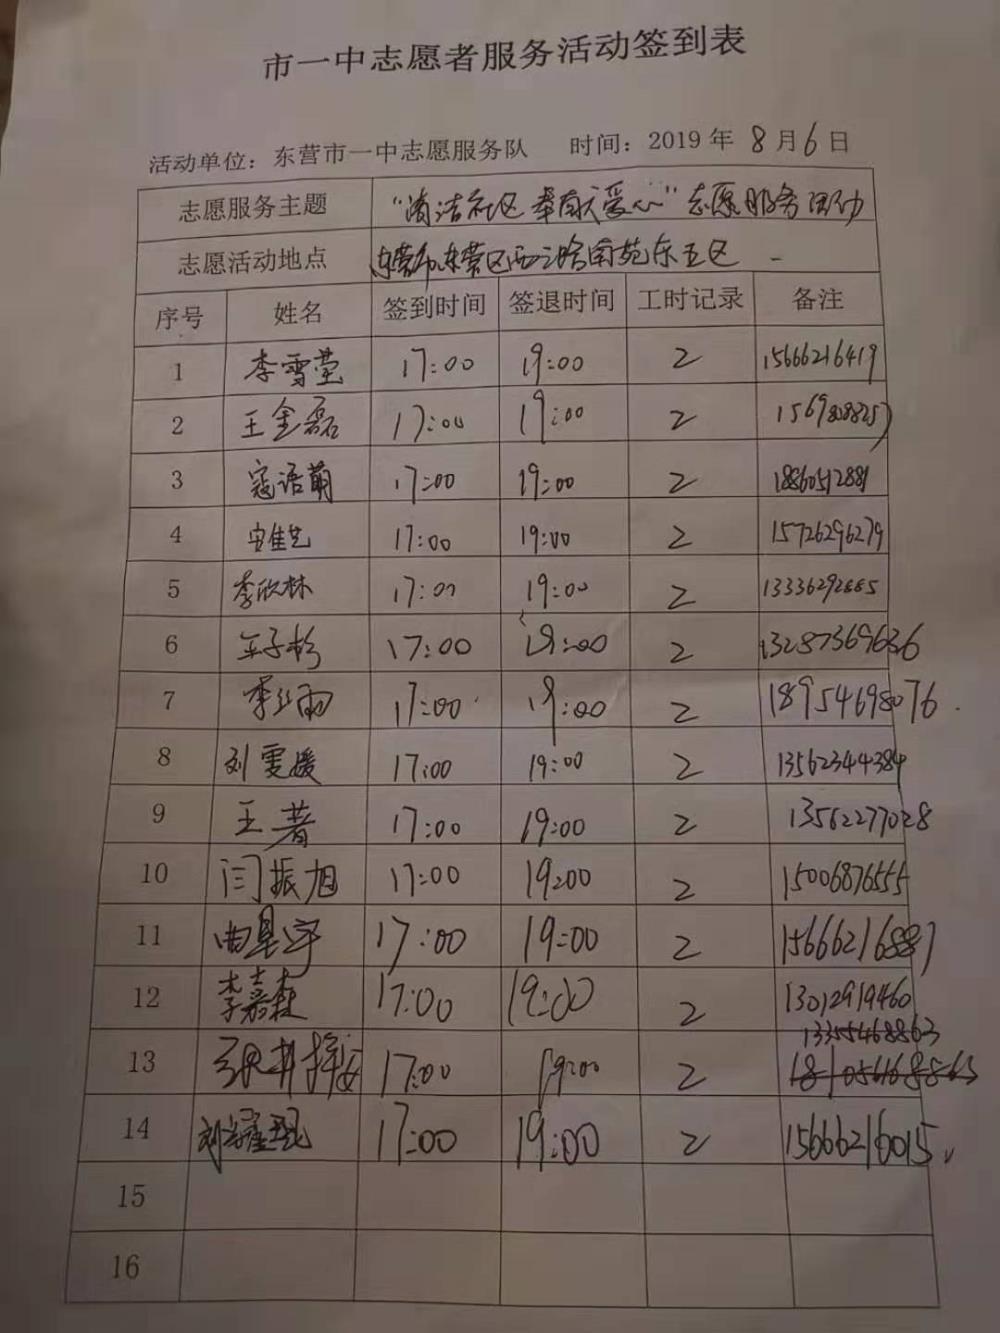 市一中志愿者服务活动签到表
活动单位：东营市一中志愿服务队 时间：2019 年 8 月 6 日
志愿服务主题 “清洁社区 奉献爱心”志愿服务活动
志愿活动地点 东营市东营区西二路南苑东五区
序号 姓名 签到时间 签退时间 工时记录 备注
1 李雪莹 17:00 19:00 2 15666216419
2 王金磊 17:00 19:00 2
3 寇语萌 17:00 19:00 2 18860512881
4 安佳艺 17:00 19:00 2 15726296279
5 李欣林 17:00 19:00 2
6 车子杉 17:00 19:00 2 13287369636
7 李红雨 17:00 19:00 2 18954698076
8 刘雯媛 17:00 19:00 2 13562344384
9 王著 17:00 19:00 2 13562277028
10 闫振旭 17:00 19:00 2 15006876555
11 曲昱宇 17:00 19:00 2 15666216887
12 李嘉森 17:00 19:00 2 13012919460
13355468863
13 17:00 19:00 2
14 刘 17:00 19:00 2 15666216015
15
16